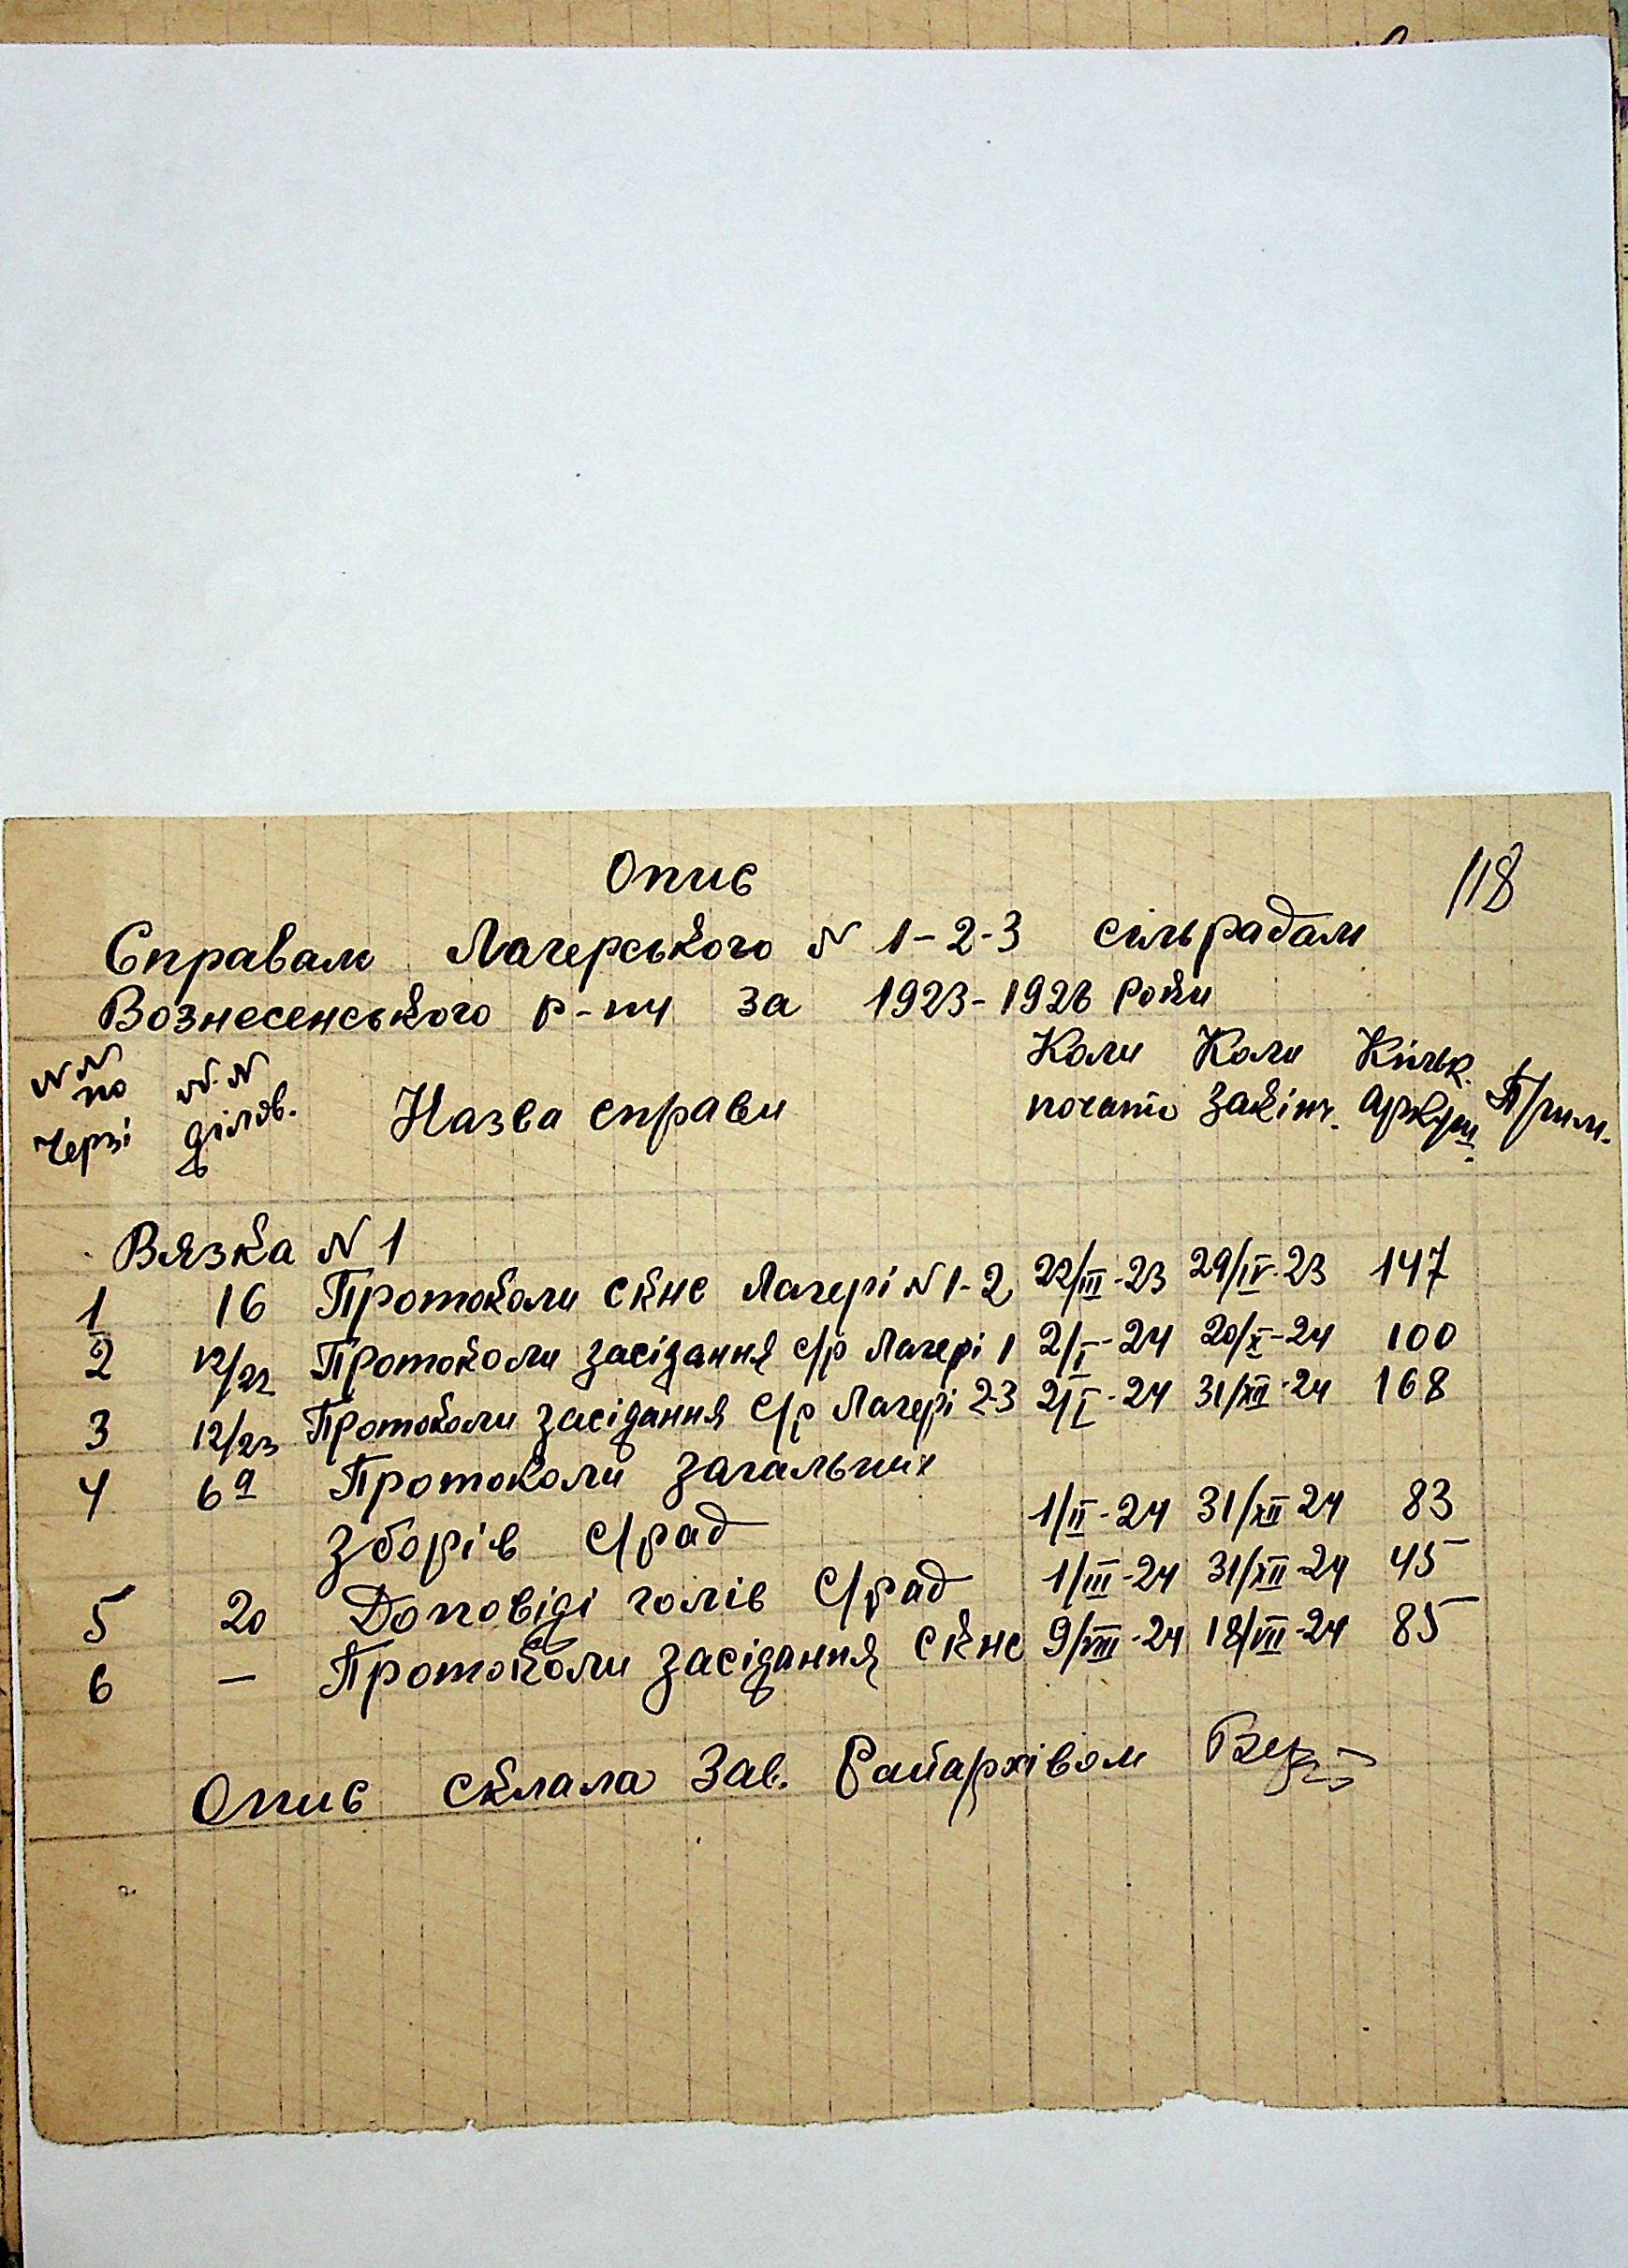 Опис
118
Справам Лагерського № 1-2-3 сільрадам
Вознесенського р-ну за 1923-1926 роки
№№ по черзі №№ ділов. Назва справи Коли почато Коли закінч. Кільк. аркуш. Прим.
Вязка № 1
1 16 Протоколи СКНС Лагері № 1-2 22/III-23 29/IV-23 147
2 12/22 Протоколи засідання с/р Лагері 1 2/I-24 20/X-24 100
3 12/23 Протоколи засідання с/р Лагері 2-3 2/I-24 31/XII-24 168
4 6а Протоколи загальних
зборів с/рад 1/II-24 31/XII-24 83
5 20 Доповіді голів с/рад 1/III-24 31/XII-24 45
6 — Протоколи засідання СКНС 9/VIII-24 18/VII-24 85
Опис склала Зав. Райархівом